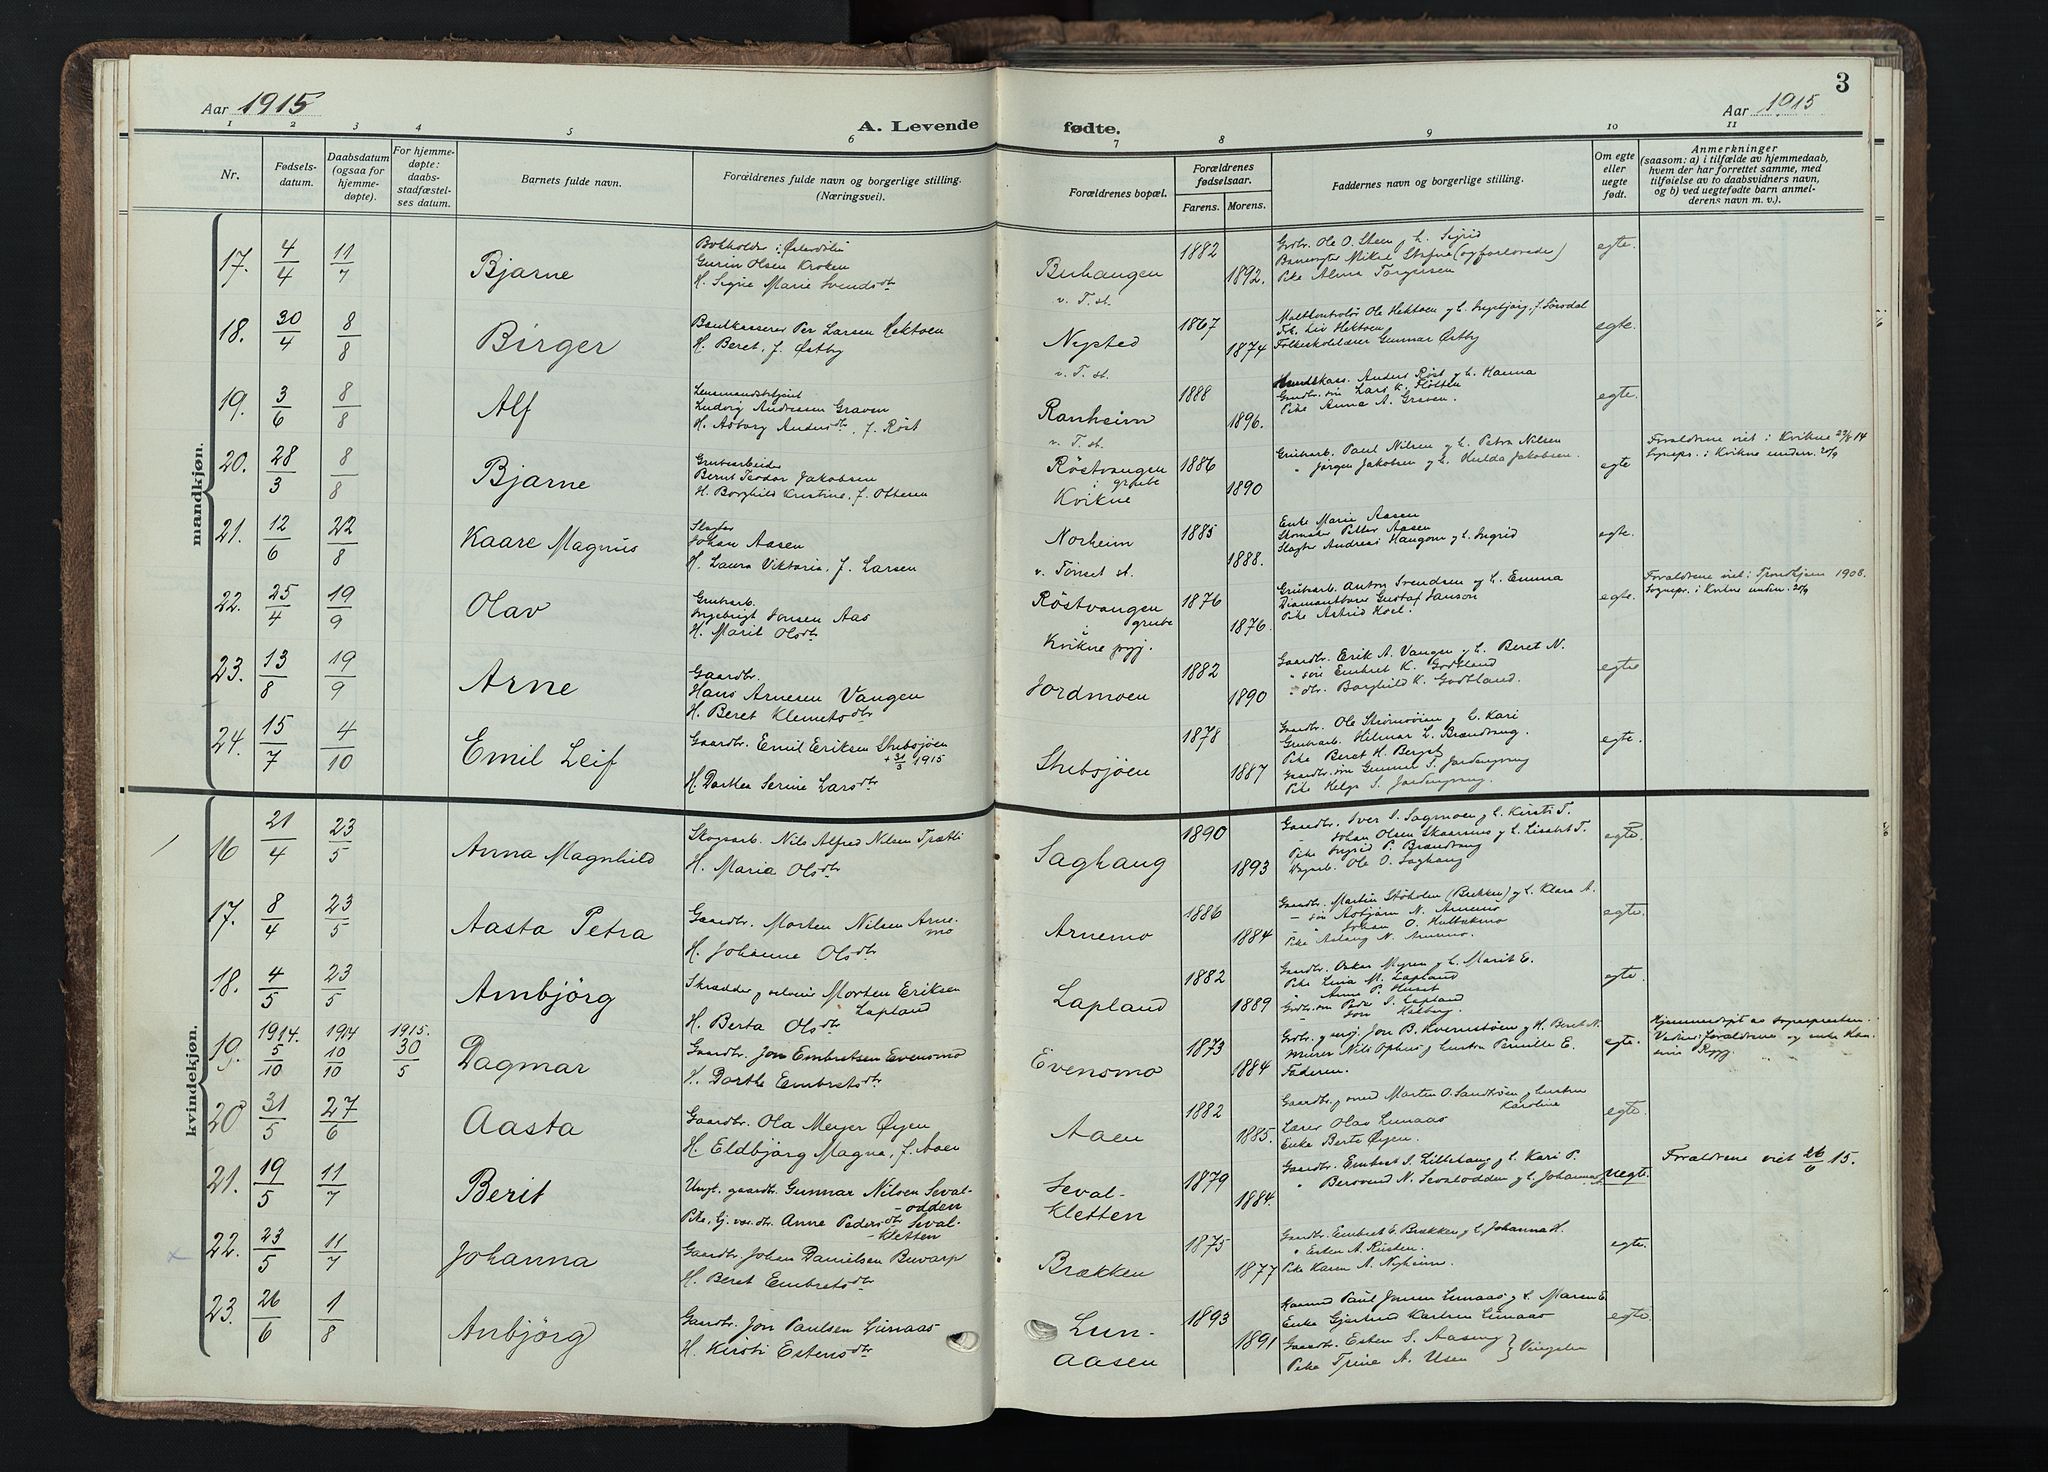 3
Aar 1915
Aar 1915
A. Levende fødte.
1 2 3 4 5 6 7 8 9 10 11
Nr.
Fødsels-
datum.
Daabsdatum
(ogsaa for
hjemme-
døpte).
For hjemme-
døpte:
daabs-
stadfæstel-
ses datum.
Barnets fulde navn.
Forældrenes fulde navn og borgerlige stilling.
(Næringsvei).
Forældrenes bopæl.
Forældrenes
fødselsaar.
Farens. Morens.
Faddernes navn og borgerlige stilling.
Om egte
eller
uegte
født.
Anmerkninger
(saasom: a) i tilfælde av hjemmedaab,
hvem der har forrettet samme, med
tilføielse av to daabsvidners navn,
og b) ved uegtefødte barn anmel-
derens navn m. v.).
mandkjøn.
17. 4/4 11/7 Bjarne
Gurin Olsen Kroken
H. Signe Marie Svendsdtr
Buhaugen
v. T. st.
1882 1892.
Grdbr. Ole O. Steen g h. Sigrid
Pike Alma Torgersen
egte.
18. 30/4 8/8 Birger
Bankkasserer Per Larsen Hektoen
H. Beret, f. Østby
Nysted
v. T. st.
1867 1874
Frk. Liv Hektoen
Folkeskolelærer Gunnar Østby
egte.
19. 3/6 8/8 Alf
Lensmandsbetjent
Ludvig Andreasen Graven
H. Asborg Andersdtr, f. Røst
Ranheim
v. T. st.
1888 1896.
Anders Røst g h. Hanna
Gaardbr. søn Lars K. Fløtten
Pike Anna A. Graven.
egte.
20. 28/3 8/8 Bjarne
Grubearbeider
Bernt Teodor Jakobsen
H. Borghild Kristine, f. Ottesen
Røstvangen
grube
i Kvikne
1886 1890
Grubearb. Paul Nilsen g h. Petra Nilsen
" Jørgen Jakobsen g h. Hulda Jakobsen.
egte
Forældrene viet i Kvikne 29/8 14
Sognepr. i Kvikne underr. 20/9
21. 12/6 22/8 Kaare Magnus
Slagter
Johan Aasen
H. Laura Viktoria, f. Larsen
Norheim
v. Tönset st.
1885 1888.
Enke Marie Aasen
Skomaker Petter Aasen
Slagter Andreas Haugom g h. Ingrid
egte.
22. 25/4 19/9 Olav
Grubearb.
Ingebrigt Jonsen Aas
H. Marit Olsdtr
Røstvangen
grube
i Kvikne pgj.
1876 1876.
Grubearb. Anton Svendsen g h. Emma
Diamantborer Gustaf Janson
Pike Astrid Hoel.
egte.
Forældrene viet i Trondhjem 1908.
Sognepr. i Kvikne underr. 20/9
23. 13/8 19/9 Arne
Gaardbr.
Hans Arnesen Vangen
H. Beret Klemetsdtr
Jordmoen
1882 1890
Gaardbr. Erik A. Vangen g h. Beret N.
" søn Embret K. Godtland
" dtr. Borghild K. Godtland.
egte
24. 15/7 4/10 Emil Leif
Gaardbr. Emil Eriksen Stubsjøen
+ 31/3 1915
H. Dorthea Serine Larsdtr
Stubsjöen
1878 1887
Gaardbr. Ole Strømsöien g h. Kari
Grubearb. Hilmar L. Brændvang.
Pike Beret H. Berget
Gaardbr. søn Gunnar T. Jordengvang
Pike Helga S. Jordengvang.
egte.
kvindekjøn.
16 21/4 23/5 Anna Magnhild
Skogsarb. Nils Alfred Nilsen Trætli
H. Maria Olsdtr
Saghaug
1890 1893
Gaardbr. Iver S. Sagmoen g h. Kirsti T.
Johan Olsen Skaarsmo g h. Lisabet T.
Pike Ingrid P. Brændvang
Ole O. Saghaug
egte.
17. 8/4 23/5 Aasta Petra
Gaardbr. Morten Nilsen Arne-
mo
H. Johanne Olsdtr
Arnemo
1886 1884
Gaardbr. Martin Støholen (Brekken) g h. Klara A.
" søn Asbjørn N. Arnemo
Pike Aslaug N. Arnemo.
egte.
18. 4/5 23/5 Arnbjörg
Skrædder g Morten Eriksen
Lapland
H. Berta Olsdtr
Lapland
1882 1889
Gaardbr. Oskar Myren g h. Marit E.
Pike Lina M. Lapland
" Anne P. Huset
Grdbr. søn Peder S. Lapland
egte
19. 1914. 5/10 1914 10/10 1915. 30/5 Dagmar
Gaardbr. Jon Embretsen Evensmo
H. Dorthe Embretsdtr
Evensmo
1873 1884
Jon B. Kvernstöen g H. Beret N.
Murer Nils Ophus g hustru Pernille E.
Faderen.
egte.
Hjemmedøpt av sognepresten.
Vidner: Forældrene og enke Kar-
20 31/5 27/6 Aasta
Gaardbr. Ola Meyer Øyen
H. Eldbjörg Magna, f. Aaen
Aaen
1882 1885.
Gaardbr. g smed Morten O. Sandtröen g hustru
Karoline
Lærer Olav Lunaas
Enke Berte Øyen.
egte.
21. 19/5 11/7 Berit
Ungk. gaardbr. Gunnar Nilsen Seval-
-odden
Pike, Anne Pedersdtr Seval-
-kletten
Seval-
kletten
1879 1884.
Gaardbr. Embret S. Lillehaug g h. Kari P.
" Bersvend N. Sevalodden g h. Johanna
uegte
Forældrene viet 26/6 15.
22. 23/5 11/7 Johanna
Gaardbr. Johan Danielsen Buvarp
H. Beret Embretsdtr
Brækken
1875 1877
Gaardbr. Embret E. Brækken g h. Johanna H.
" Esten A. Rusten.
Pike Karen A. Nyheim.
egte.
23. 26/6 1/8 Anbjörg
Gaardbr. Jon Paulsen Lunaas
H. Kirsti Estensdtr
Lun-
aasen
1893 1891
Paul Jonsen Lunaas g h. Maren E.
Enke Gjertrud Karlsen Lunaas
Gaardbr. Esten S. Aaseng
Pike Trine A. Usen
egte.